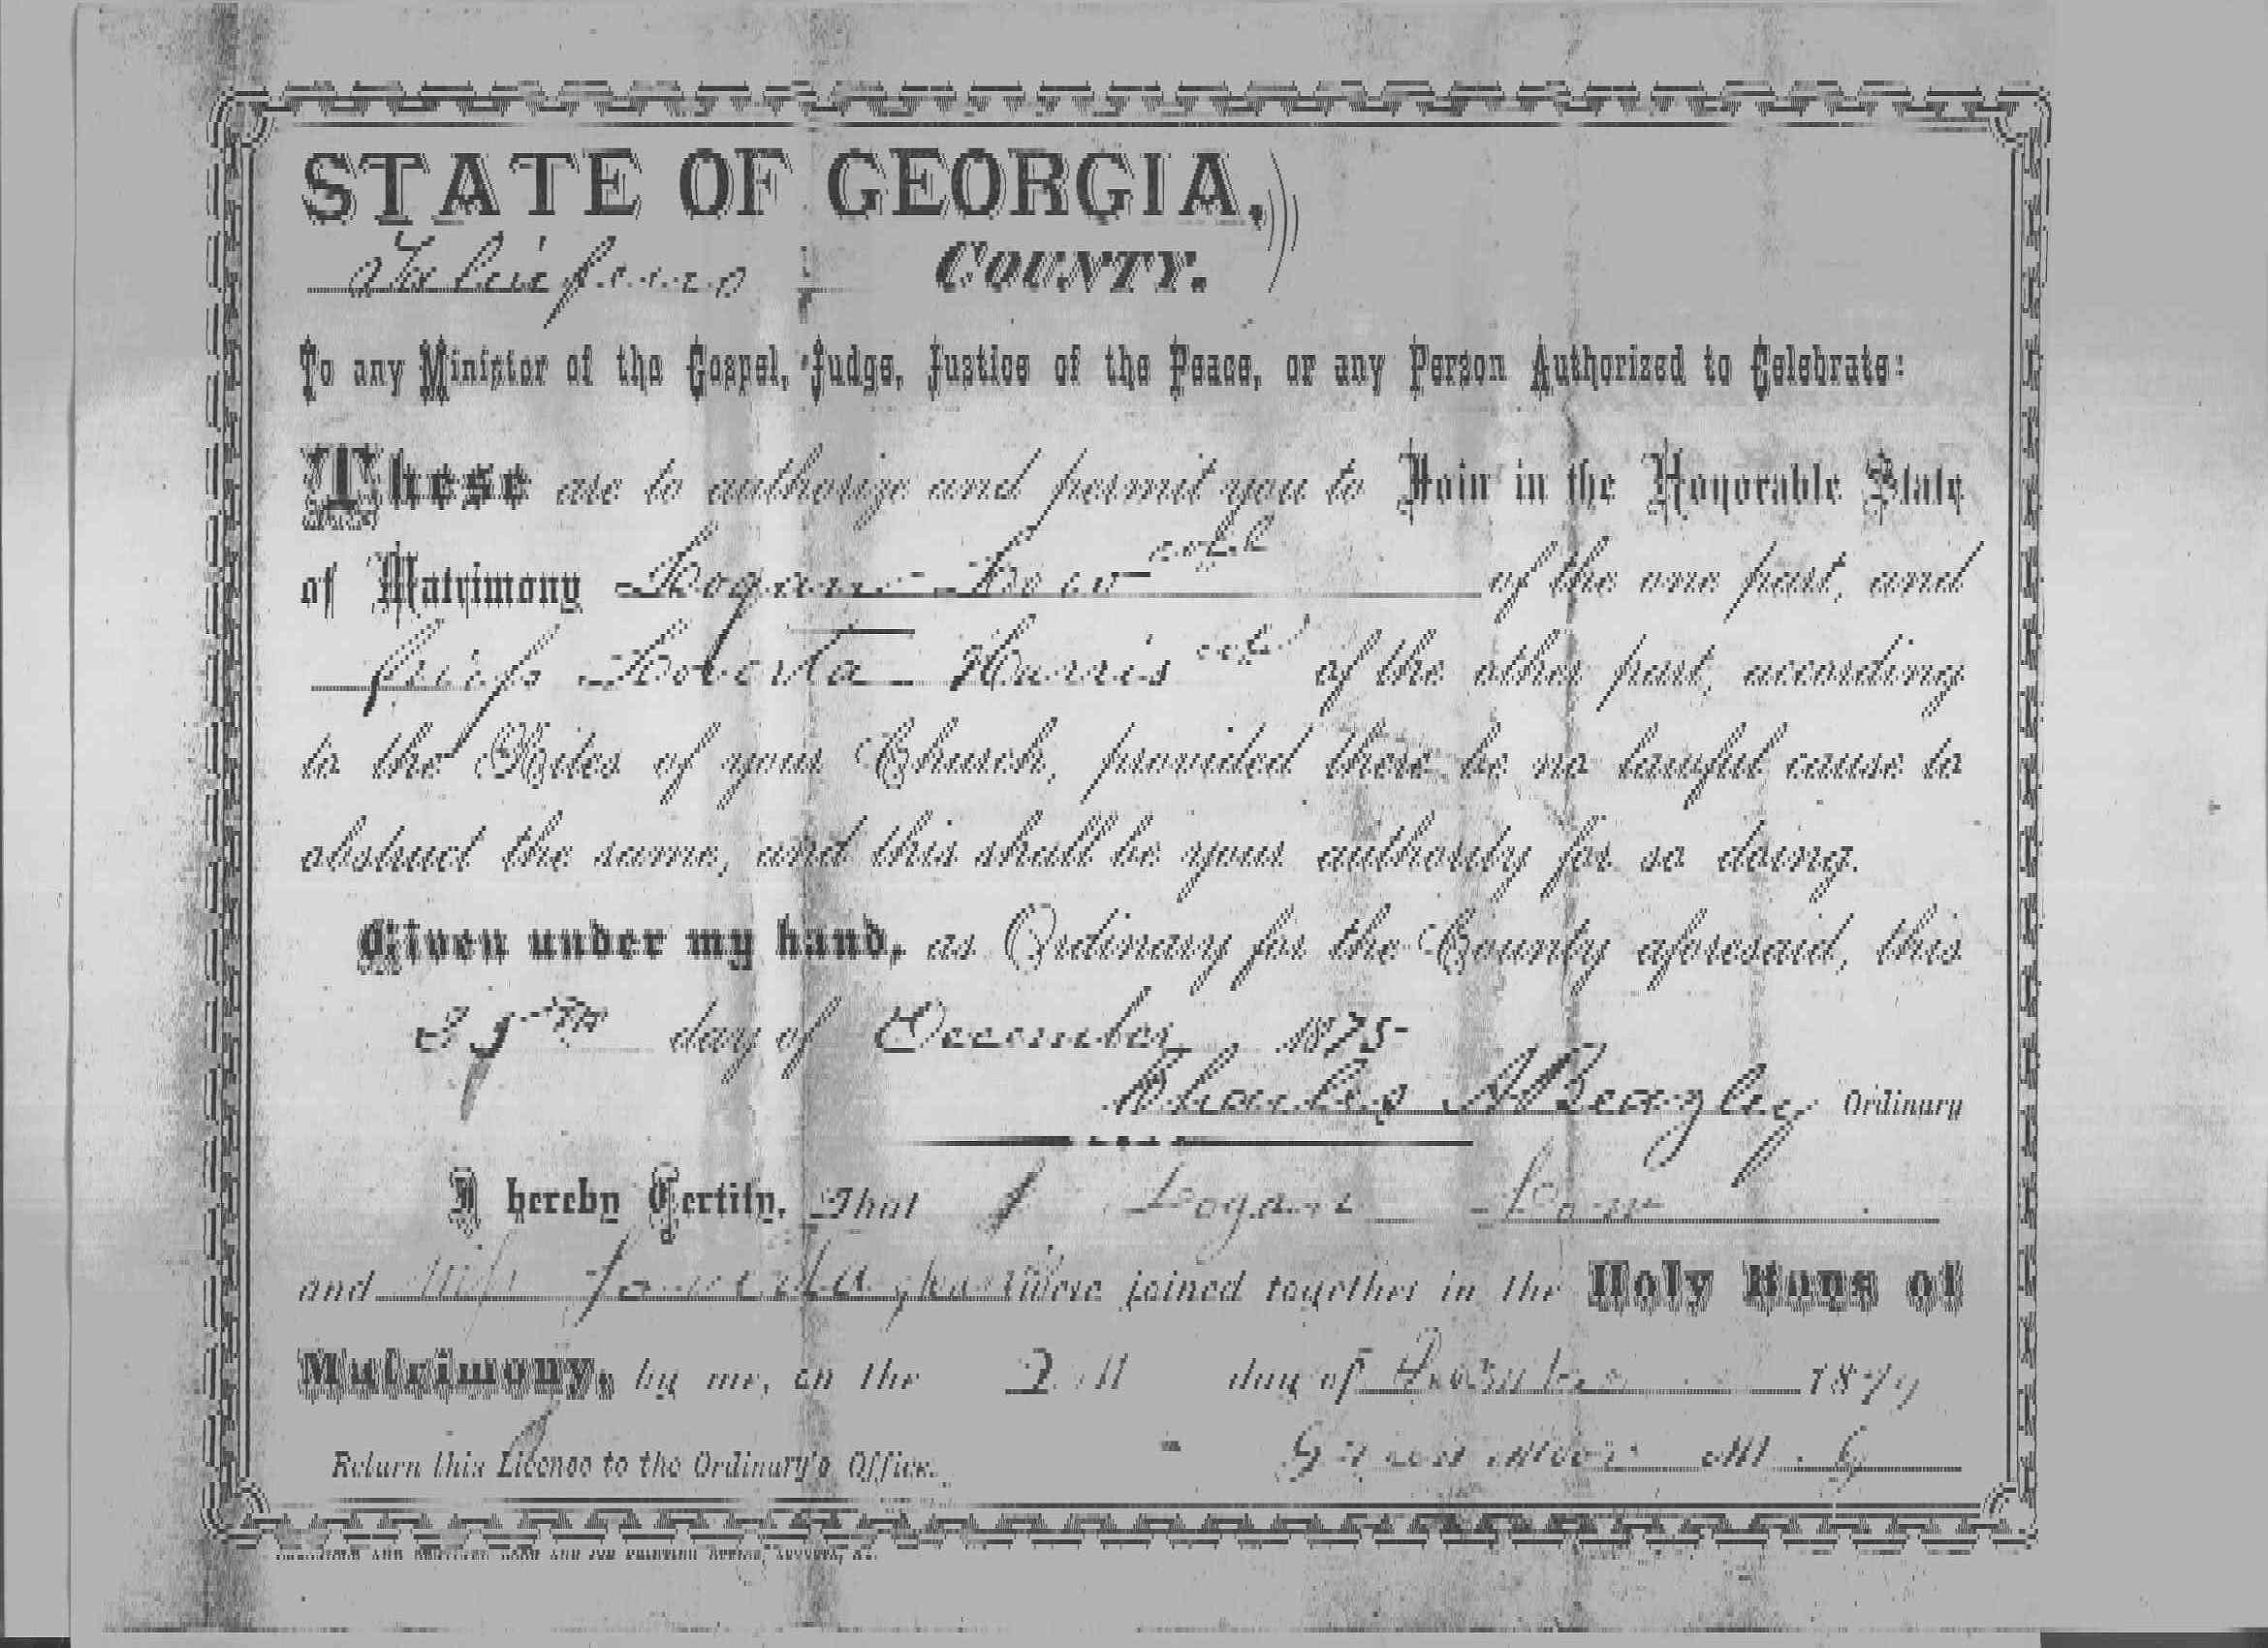 STATE OF GEORGIA,
Taliaferro COUNTY.
To any Minister of the Gospel, Judge, Justice of the Peace, or any Person Authorized to Celebrate:
These are to authorize and permit you to Join in the Honorable State
of Matrimony Logan Low cold of the one part, and
Miss Roberta Harris cold of the other part, according
to the Rites of your Church, provided there be no lawful cause to
obstruct the same, and this shall be your authority for so doing.
Given under my hand, as Ordinary for the County aforesaid, this
day of December 1875
Charles A Beazley Ordinary
I hereby Certify, That Logan Low
and Miss were joined together in the Holy Bans of
Matrimony, by me, on the day of December 187
Return this License to the Ordinary's Office. M. G